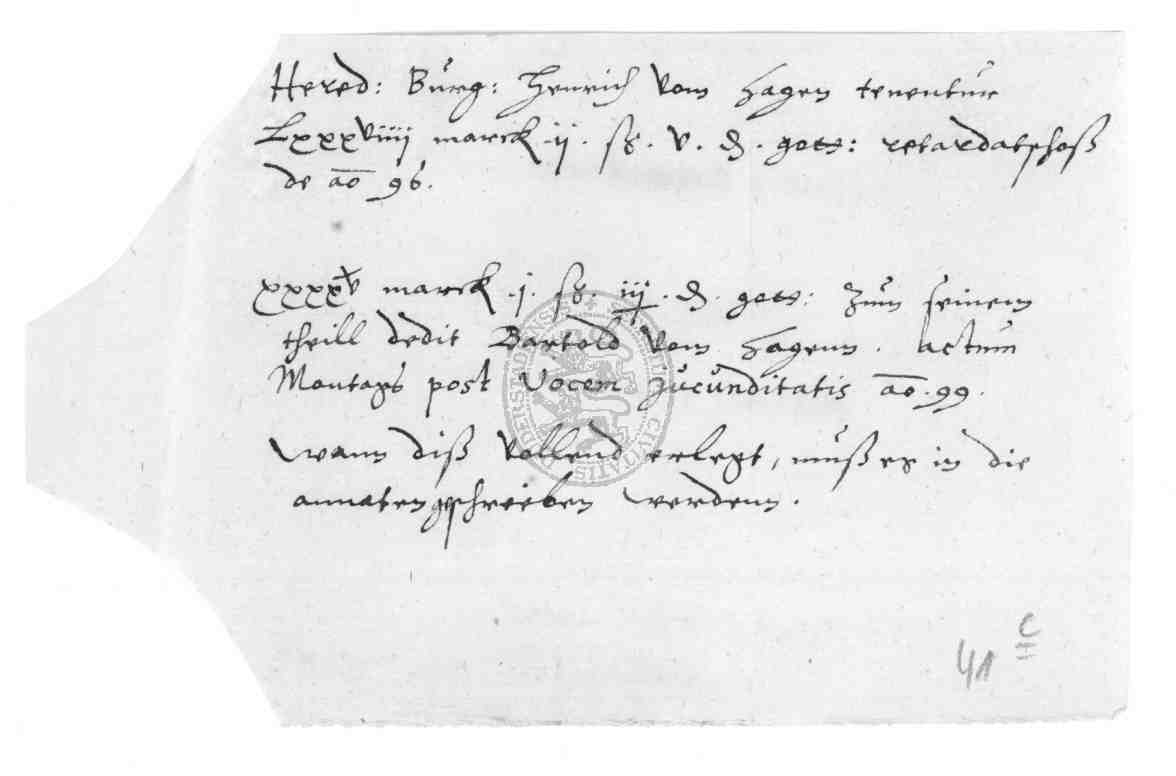 Hered: Burg: Henrich vom Hagen tenentur
Lxxxviiij marck .ij. ß. v. d. gots: retardatschoß
de ao 96.
xxxxv marck .j. ß. iij. d. gots: Zum seinem
theill dedit Bartold vom Hagenn. actum
Montags post Vocem jucunditatis ao. 99.
wann diß vollend erlegt, muß es in die
annaten geschrieben werdenn.
41 c